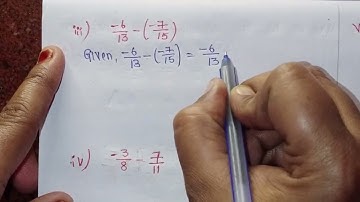 iii) -6/13 - (-7/15)
Given, -6/13 - (-7/15) = -6/13
iv) -3/8 - 7/11